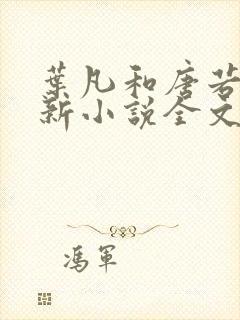 葉凡和唐若
新小說全文
馮軍